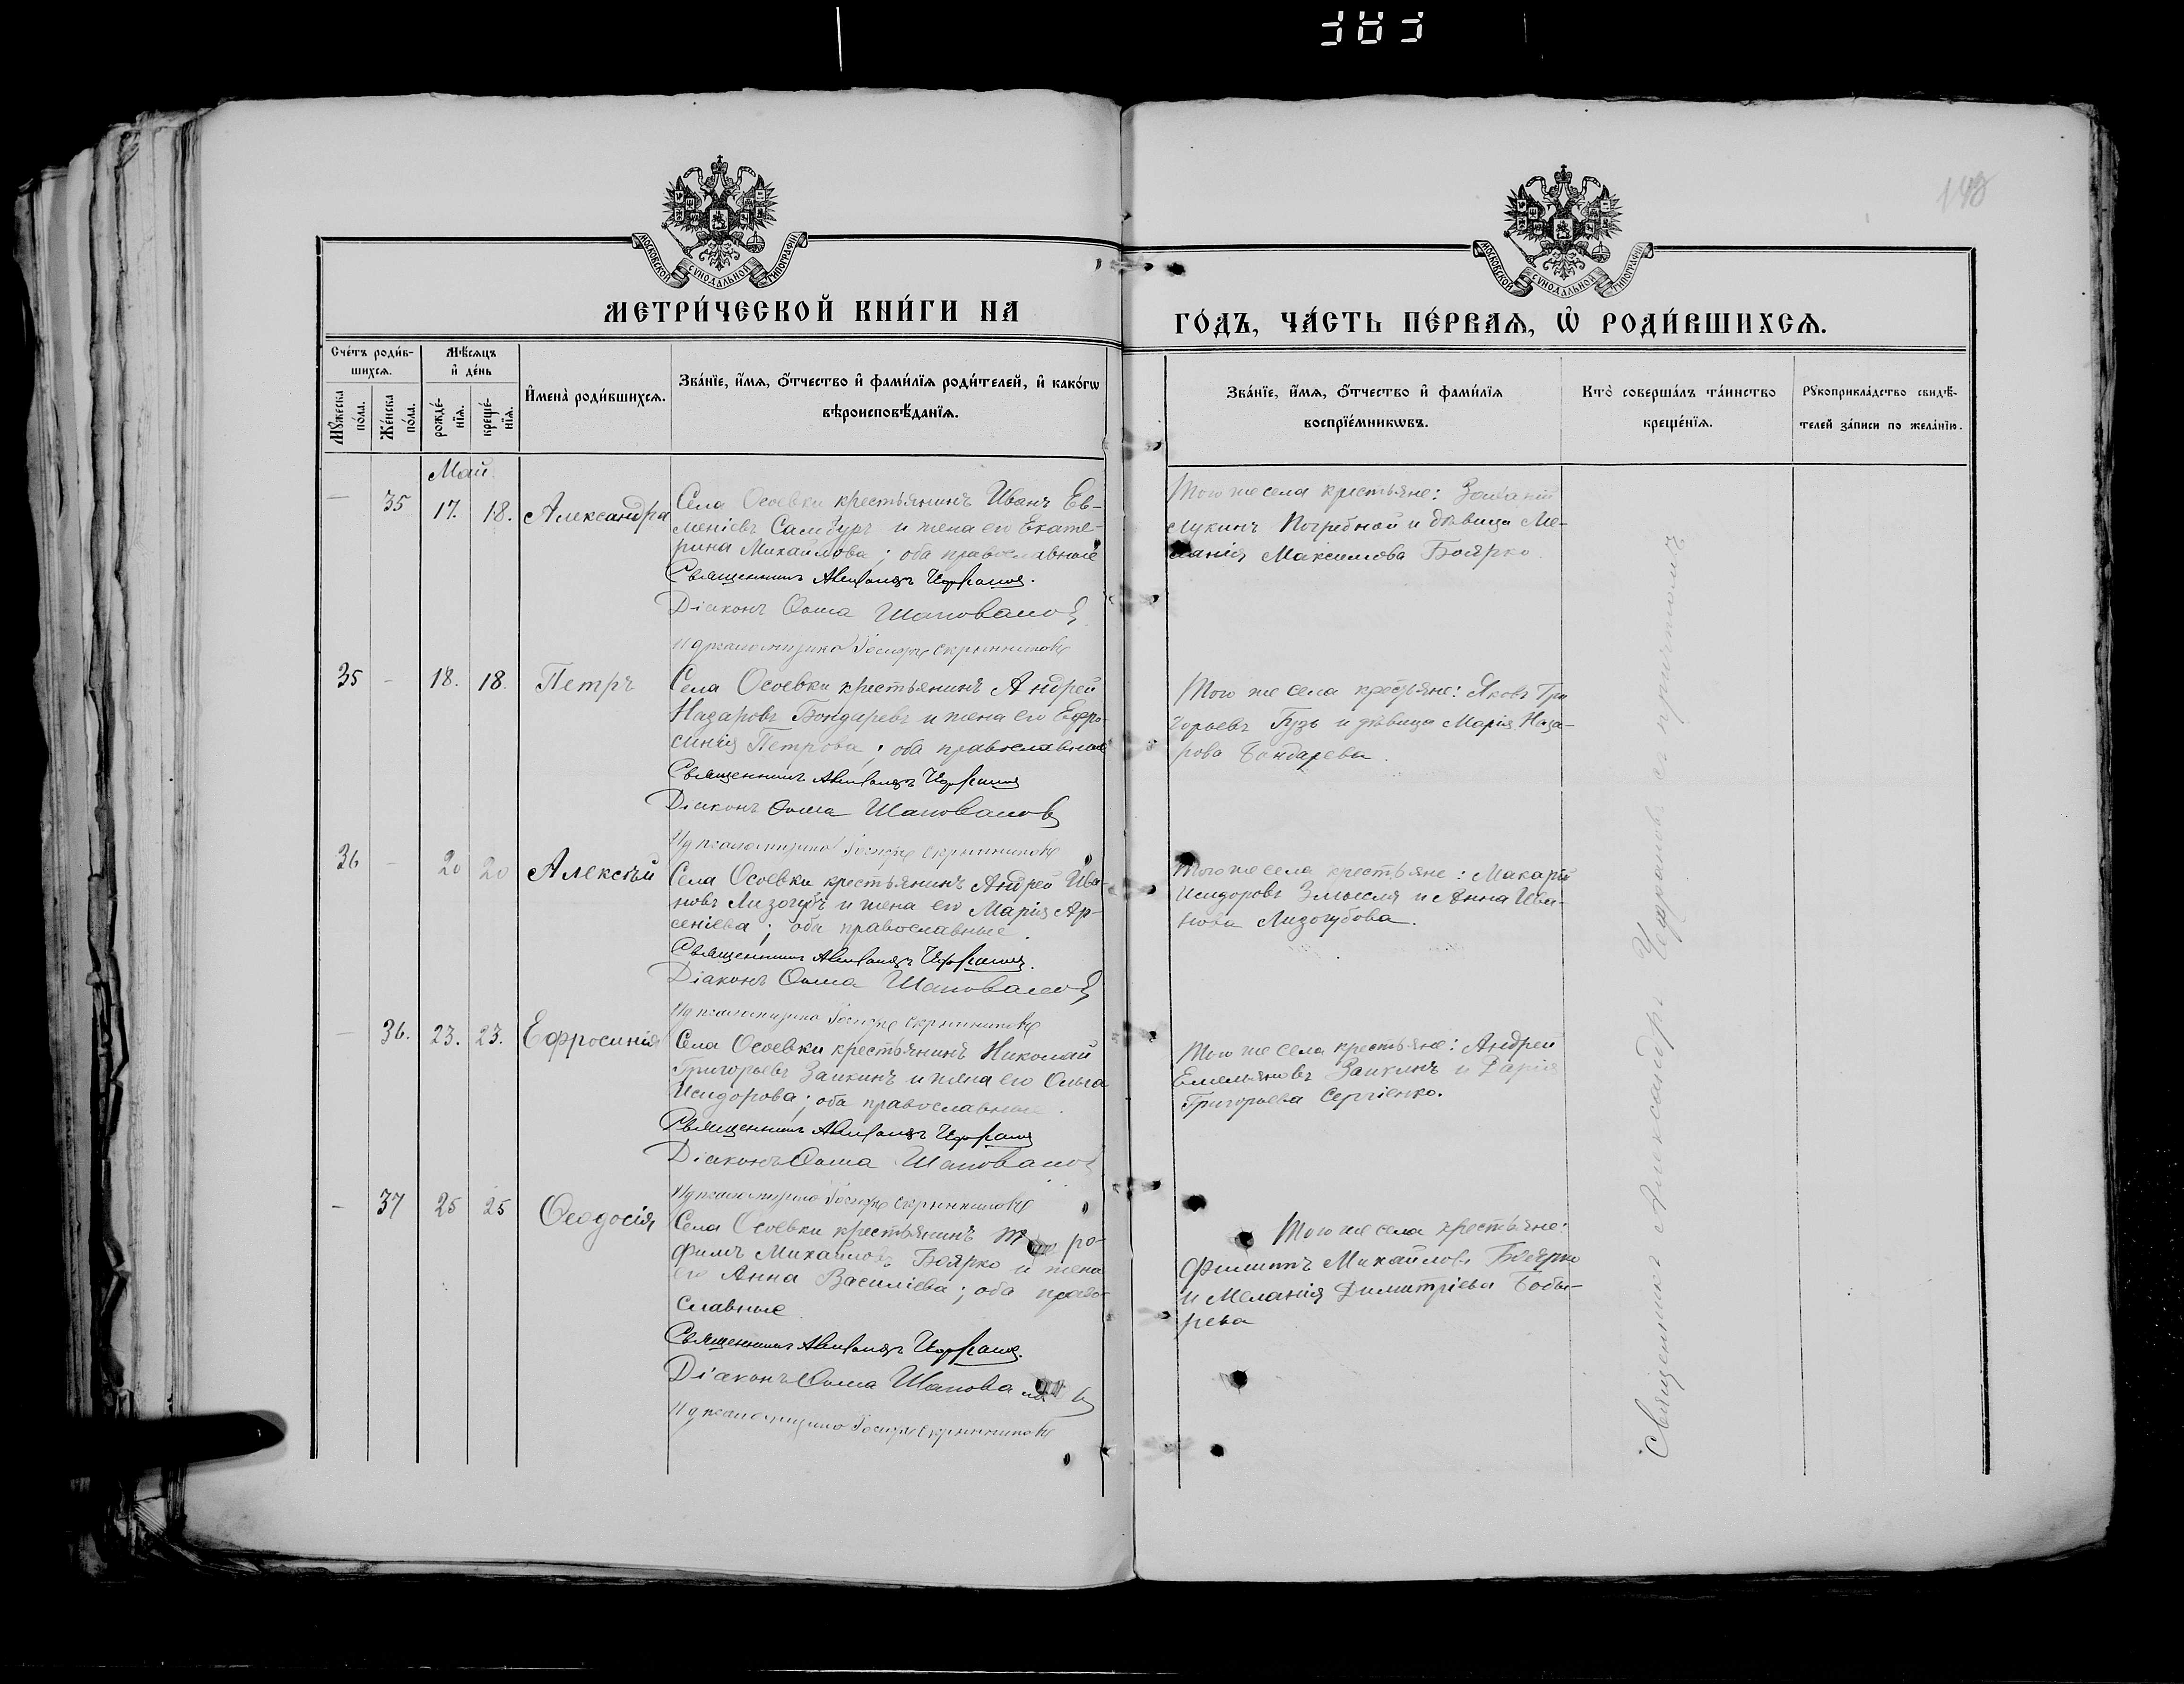 148
МОСКОВСКОЙ СѴНОДАЛЬНОЙ ТИПОГРАФІИ
МОСКОВСКОЙ СѴНОДАЛЬНОЙ ТИПОГРАФІИ
МЕТРИ́ЧЕСКОЙ КНИ́ГИ НА
ГО́ДЪ, ЧА́СТЬ ПЕ́РВАѦ, Ѡ҆ РОДИ́ВШИХСѦ.
Сче́тъ роди́в-
шихсѧ.
Мꙋ́жеска
по́ла.
Же́нска
по́ла.
Мѣ́сѧцъ
и҆ де́нь
рожде́-
нїѧ.
креще́-
нїѧ.
И҆мена̀ роди́вшихсѧ.
Зва́нїе, и҆́мѧ, ѻ҆́тчество и҆ фами́лїѧ роди́телей, и҆ како́гѡ
вѣроисповѣ́данїѧ.
Зва́нїе, и҆́мѧ, ѻ҆́тчество и҆ фами́лїѧ
воспрїе́мникѡвъ.
Кто̀ соверша́лъ та́инство
креще́нїѧ.
Рꙋкоприкла́дство свидѣ́-
телей за́писи по жела́нїю.
Май.
— 35 17. 18. Александра
Села Осоевки крестьянинъ Иванъ Ев-
меніевъ Самбуръ и жена его Екате-
рина Михайлова; оба православные
Священникъ Александръ
Діаконъ Ѳома Шаповаловъ
И д псаломщика Скрынниковъ
Того же села крестьяне:
Лукинъ Погребной и дѣвица Ме-
ланія Максимова Боярко.
35 - 18. 18. Петръ
Села Осоевки крестьянинъ Андрей
Назаровъ Бондаревъ и жена его Ефро-
синія Петрова; оба православные
Священникъ Александръ
Діаконъ Ѳома Шаповаловъ
И д псаломщика Скрынниковъ
Того же села крестьяне: Яковъ Гри
горьевъ Гузь и дѣвица Марія Наза-
рова Бондарева.
36 - 20 20 Алексѣй
Села Осоевки крестьянинъ Андрей Ива-
новъ Лизогубъ и жена его Марія Ар-
сеніева; оба православные.
Священникъ Александръ
Діаконъ Ѳома Шаповаловъ
И д псаломщика Скрынниковъ
Того же села крестьяне: Макарій
Исидоровъ Змысля и Анна Ива-
нова Лизогубова.
— 36. 23. 23. Ефросинія
Села Осоевки крестьянинъ Николай
Григорьевъ Заикинъ и жена его Ольга
Исидорова; оба православные.
Священникъ Александръ
Діаконъ Ѳома Шаповаловъ
И д псаломщика Скрынниковъ
Того же села крестьяне: Андрей
Емельяновъ Заикинъ и Дарія
Григорьева Сергіенко.
- 37 25 25 Ѳеодосія
Села Осоевки крестьянинъ ро-
фимъ Михайловъ Боярко и жена
его Анна Василіева; оба право-
славные
Священникъ Александръ
Діаконъ Ѳома Шаповаловъ
И д псаломщика Скрынниковъ
Того же села крестьяне:
Филиппъ Михайловъ Боярко
и Меланія Димитріева Бобы-
рева
Священникъ Александръ съ причтомъ